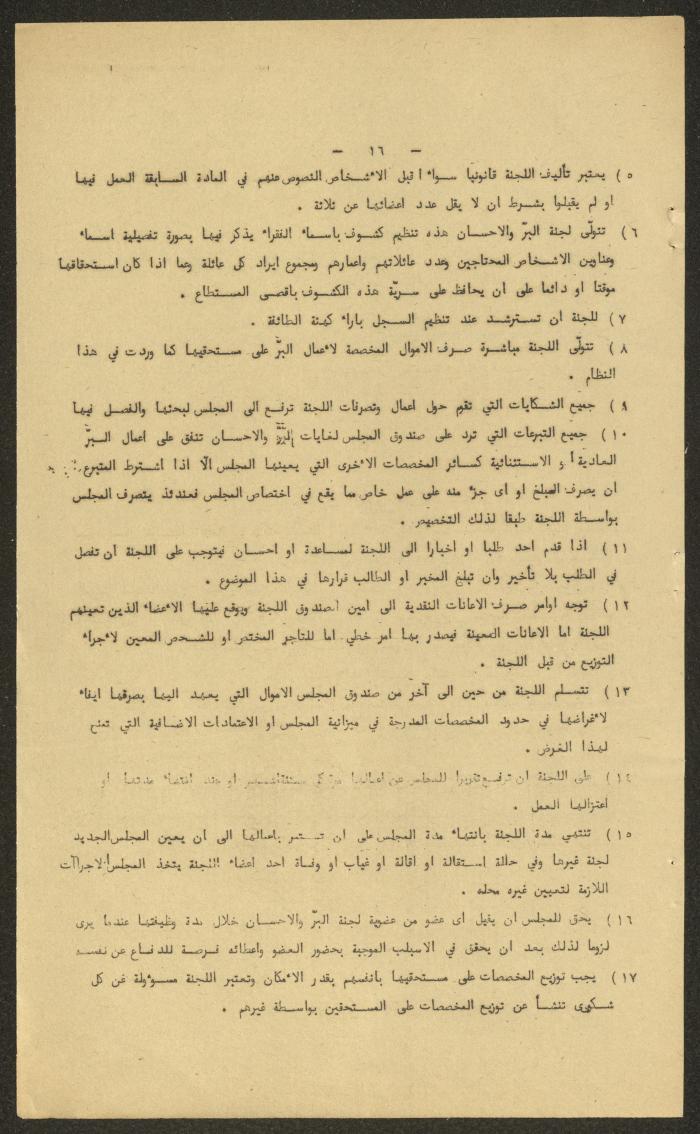 – ١٦ –
٥ ) يعتبر تأليف اللجنة قانونيا سواء اقبل الاشخاص النصوص عنهم في المادة السابقة العمل فيها
او لم يقبلوا بشرط ان لا يقل عدد اعضائها عن ثلاثة .
٦ ) تتولّى لجنة البرّ والاحسان هذه تنظيم كشوف باسماء الفقراء يذكر فيها بصورة تفصيلية اسماء
وعناوين الاشخاص المحتاجين وعدد عائلاتهم واعمارهم ومجموع ايراد كل عائلة وعما اذا كان استحقاقها
موقتا او دائما على ان يحافظ على سريّة هذه الكشوف باقصى المستطاع .
٧ ) للجنة ان تسترشد عند تنظيم السجل باراء كهنة الطائفة .
٨ ) تتولّى اللجنة مباشرة صرف الاموال المخصصة لاعمال البرّ على مستحقيها كما وردت في هذا
النظام .
٩ ) جميع الشكايات التي تقوم حول اعمال وتصرفات اللجنة ترفع الى المجلس لبحثها والفصل فيها
١٠ ) جميع التبرعات التي ترد على صندوق المجلس لغايات البرّ والاحسان تنفق على اعمال البرّ
العادية او الاستثنائية كسائر المخصصات الاخرى التي يعينها المجلس الّا اذا اشترط المتبرع
ان يصرف المبلغ او اى جزء منه على عمل خاص مما يقع في اختصاص المجلس فعندئذ يتصرف المجلس
بواسطة اللجنة طبقا لذلك التخصيص .
١١ ) اذا قدم احد طلبا او اخبارا الى اللجنة لمساعدة او احسان فيتوجب على اللجنة ان تفصل
في الطلب بلا تأخير وان تبلغ المخبر او الطالب قرارها في هذا الموضوع .
١٢ ) توجه اوامر صرف الاعانات النقدية الى امين الصندوق اللجنة ويوقع عليها الاعضاء الذين تعينهم
اللجنة اما الاعانات العينية فيصدر بها امر خطي اما للتاجر المختص او للشخص المعين لاجراء
التوزيع من قبل اللجنة .
١٣ ) تتسلم اللجنة من حين الى آخر من صندوق المجلس الاموال التي يعهد اليها بصرفها ايفاء
لاغراضها في حدود المخصصات المدرجة في ميزانية المجلس او الاعتمادات الاضافية التي تمنح
لهذا الغرض .
١٤ ) على اللجنة ان ترفع تقريرا للمجلس عن اعمالها او عند انقضاء مدتها او
اعتزالها العمل .
١٥ ) تنتهي مدة اللجنة بانتهاء مدة المجلس على ان تستمر باعمالها الى ان يعين المجلس الجديد
لجنة غيرها وفي حالة استقالة او اقالة او غياب او وفاة احد اعضاء اللجنة يتخذ المجلس الاجراآت
اللازمة لتعيين غيره محله .
١٦ ) يحق للمجلس ان يقيل اى عضو من عضوية لجنة البرّ والاحسان خلال مدة وظيفتها عندما يرى
لزوما لذلك بعد ان يحقق في الاسباب الموجبة بحضور العضو واعطائه فرصة للدفاع عن نفسه
١٧ ) يجب توزيع المخصصات على مستحقيها بانفسهم بقدر الامكان وتعتبر اللجنة مسوءولة عن كل
شكوى تنشأ عن توزيع المخصصات على المستحقين بواسطة غيرهم .